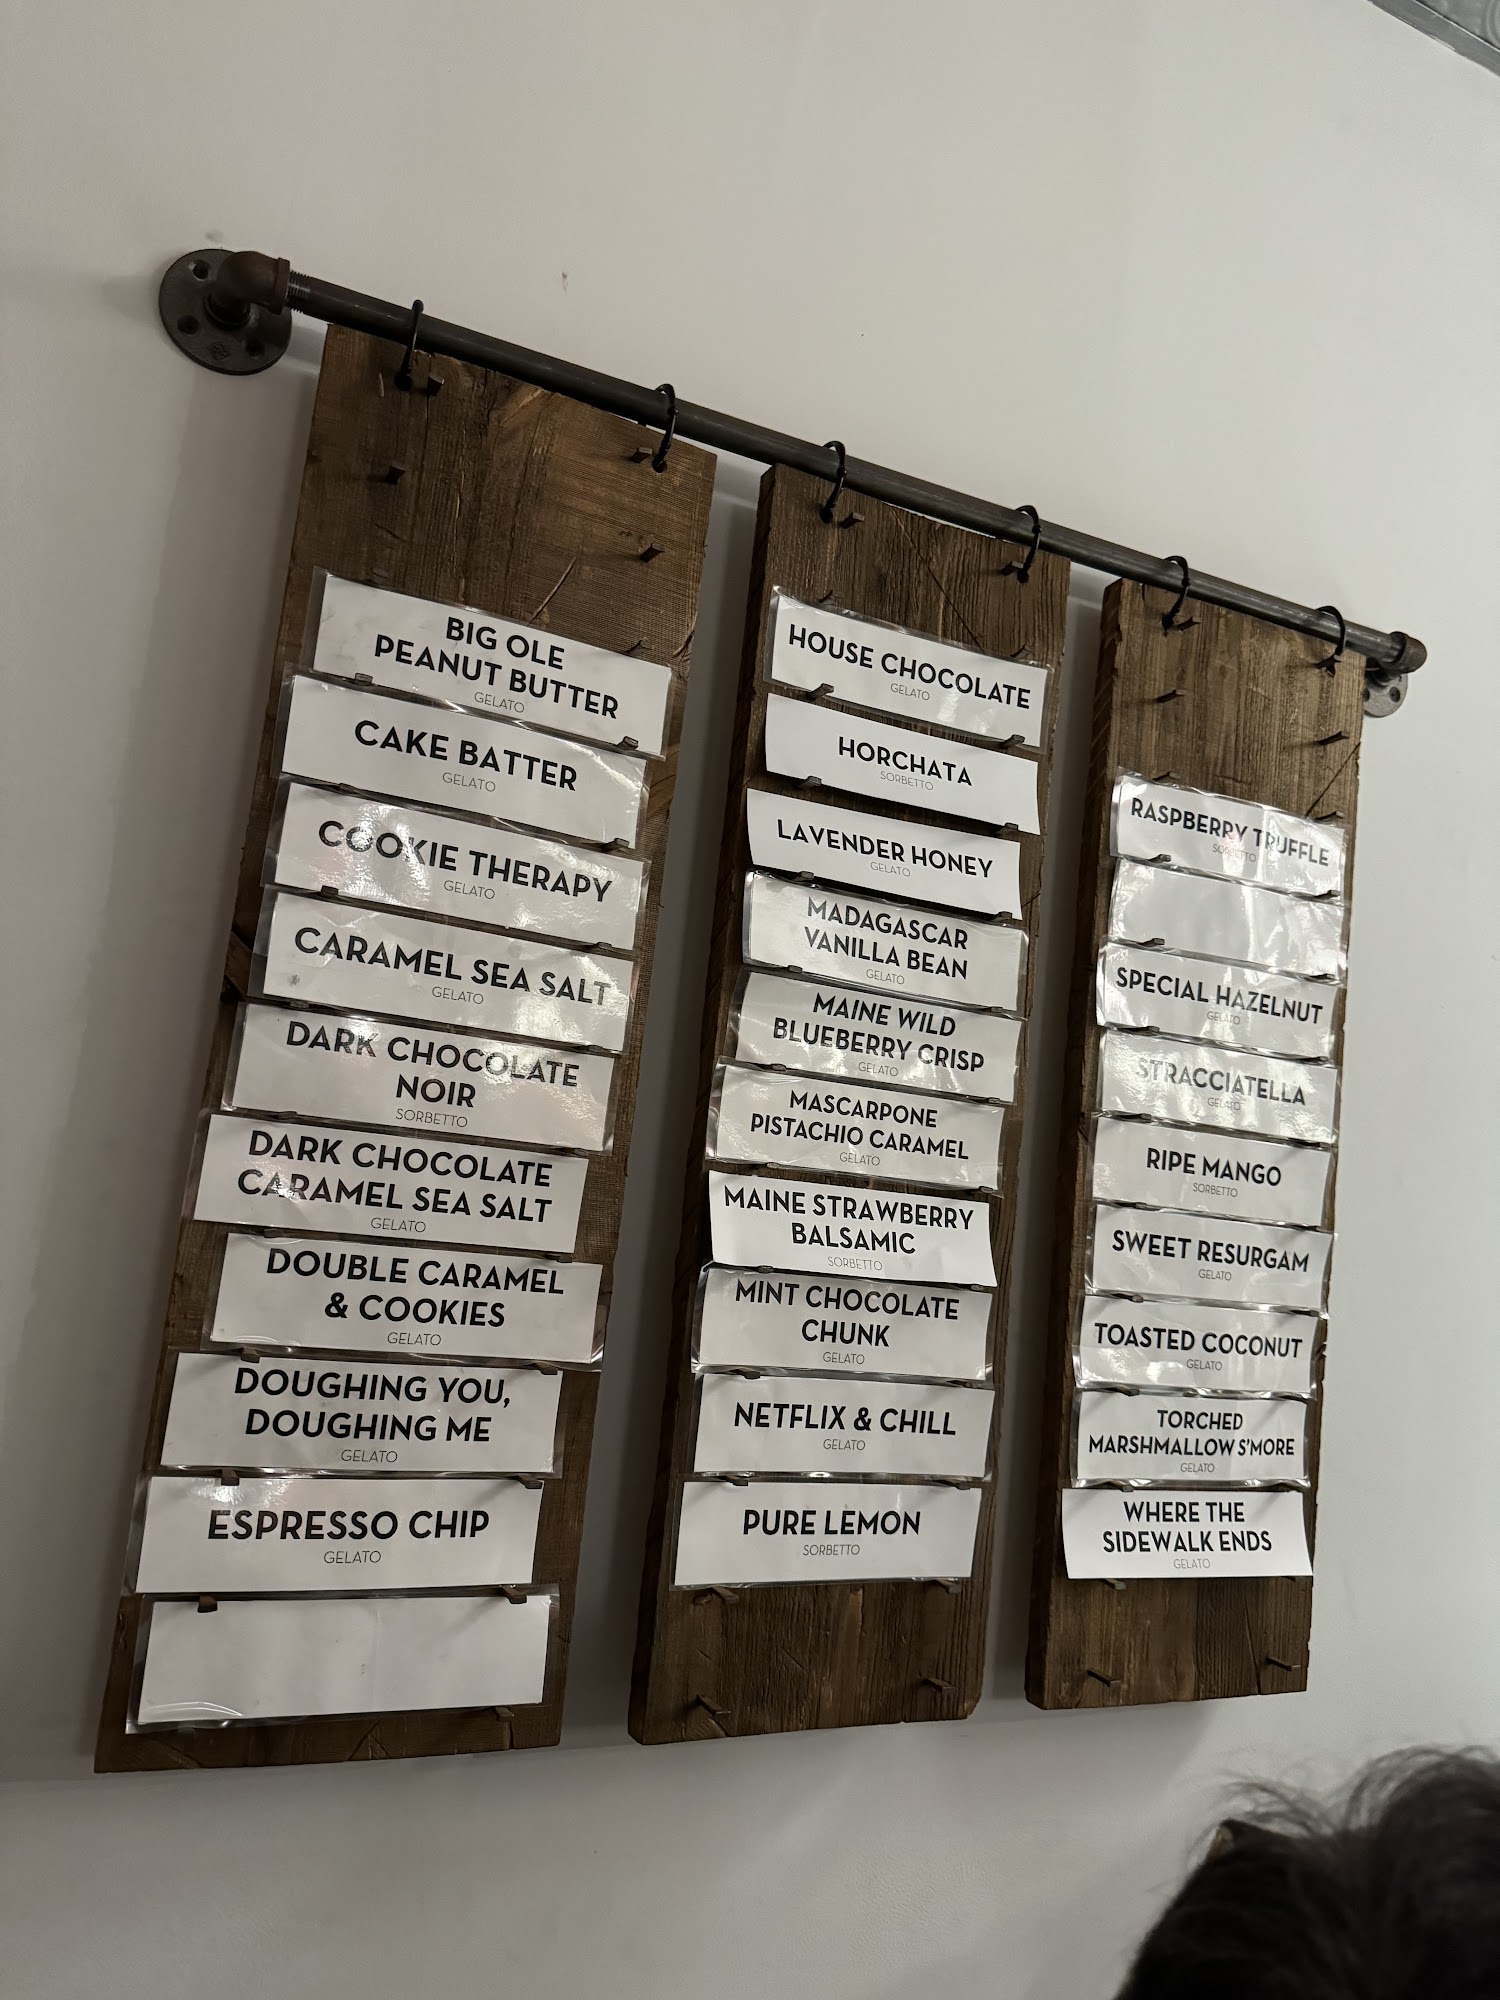 BIG OLE
PEANUT BUTTER
GELATO
CAKE BATTER
GELATO
COOKIE THERAPY
GELATO
CARAMEL SEA SALT
GELATO
DARK CHOCOLATE
NOIR
SORBETTO
DARK CHOCOLATE
CARAMEL SEA SALT
GELATO
DOUBLE CARAMEL
& COOKIES
GELATO
DOUGHING YOU,
DOUGHING ME
GELATO
ESPRESSO CHIP
GELATO
HOUSE CHOCOLATE
GELATO
HORCHATA
SORBETTO
LAVENDER HONEY
GELATO
MADAGASCAR
VANILLA BEAN
GELATO
MAINE WILD
BLUEBERRY CRISP
GELATO
MASCARPONE
PISTACHIO CARAMEL
GELATO
MAINE STRAWBERRY
BALSAMIC
SORBETTO
MINT CHOCOLATE
CHUNK
GELATO
NETFLIX & CHILL
GELATO
PURE LEMON
SORBETTO
RASPBERRY TRUFFLE
SORBETTO
SPECIAL HAZELNUT
GELATO
STRACCIATELLA
GELATO
RIPE MANGO
SORBETTO
SWEET RESURGAM
GELATO
TOASTED COCONUT
GELATO
TORCHED
MARSHMALLOW S'MORE
GELATO
WHERE THE
SIDEWALK ENDS
GELATO